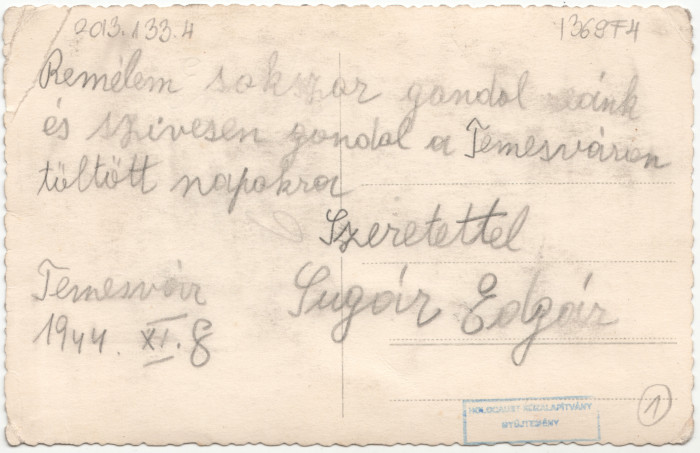 2013.133.4
136874
Remélem sokszor gondol ránk
és szivesen gondol a Temesváron
töltött napokra
Szeretettel
Temesvár
Sugár Edgár
1944. XI. 8
HOLOCAUST KÖZALAPÍTVÁNY
GYŰJTEMÉNY
1